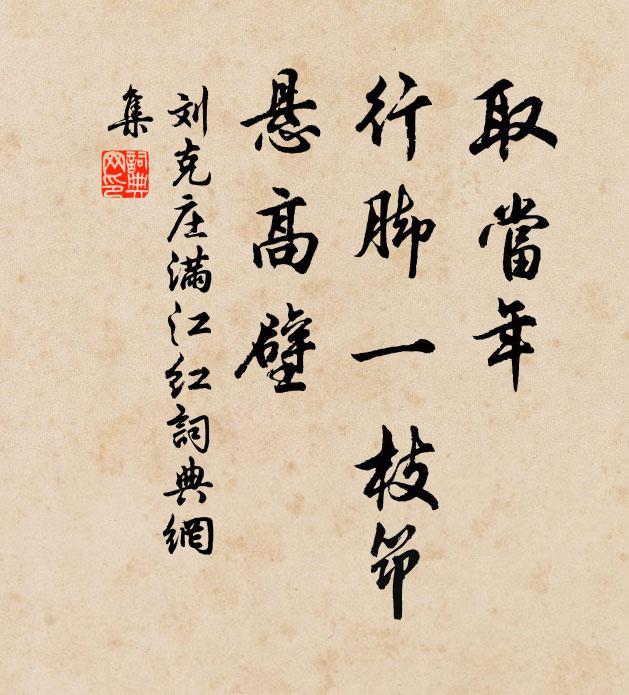 取當年
行脚一枝筇
悬高壁
刘克庄满江红詞典網
集
詞典
网印